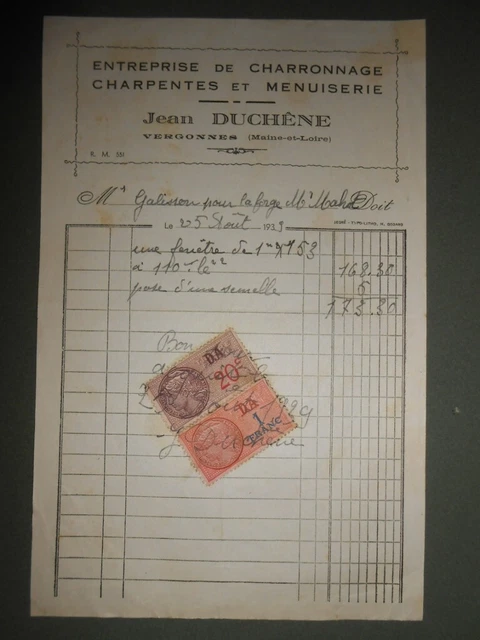 ENTREPRISE DE CHARRONNAGE
CHARPENTES ET MENUISERIE
Jean DUCHÊNE
VERGONNES (Maine-et-Loire)
R. M. 551
Mr Galisson pour la forge Mr Mahé Doit
Le 25 Août 1939
une fenêtre de 1m 153
à 110f le m2 168.30
pose d'une semelle 5
173.30
Bon
DA
20c
1939
DA
1 FRANC
J Duchêne